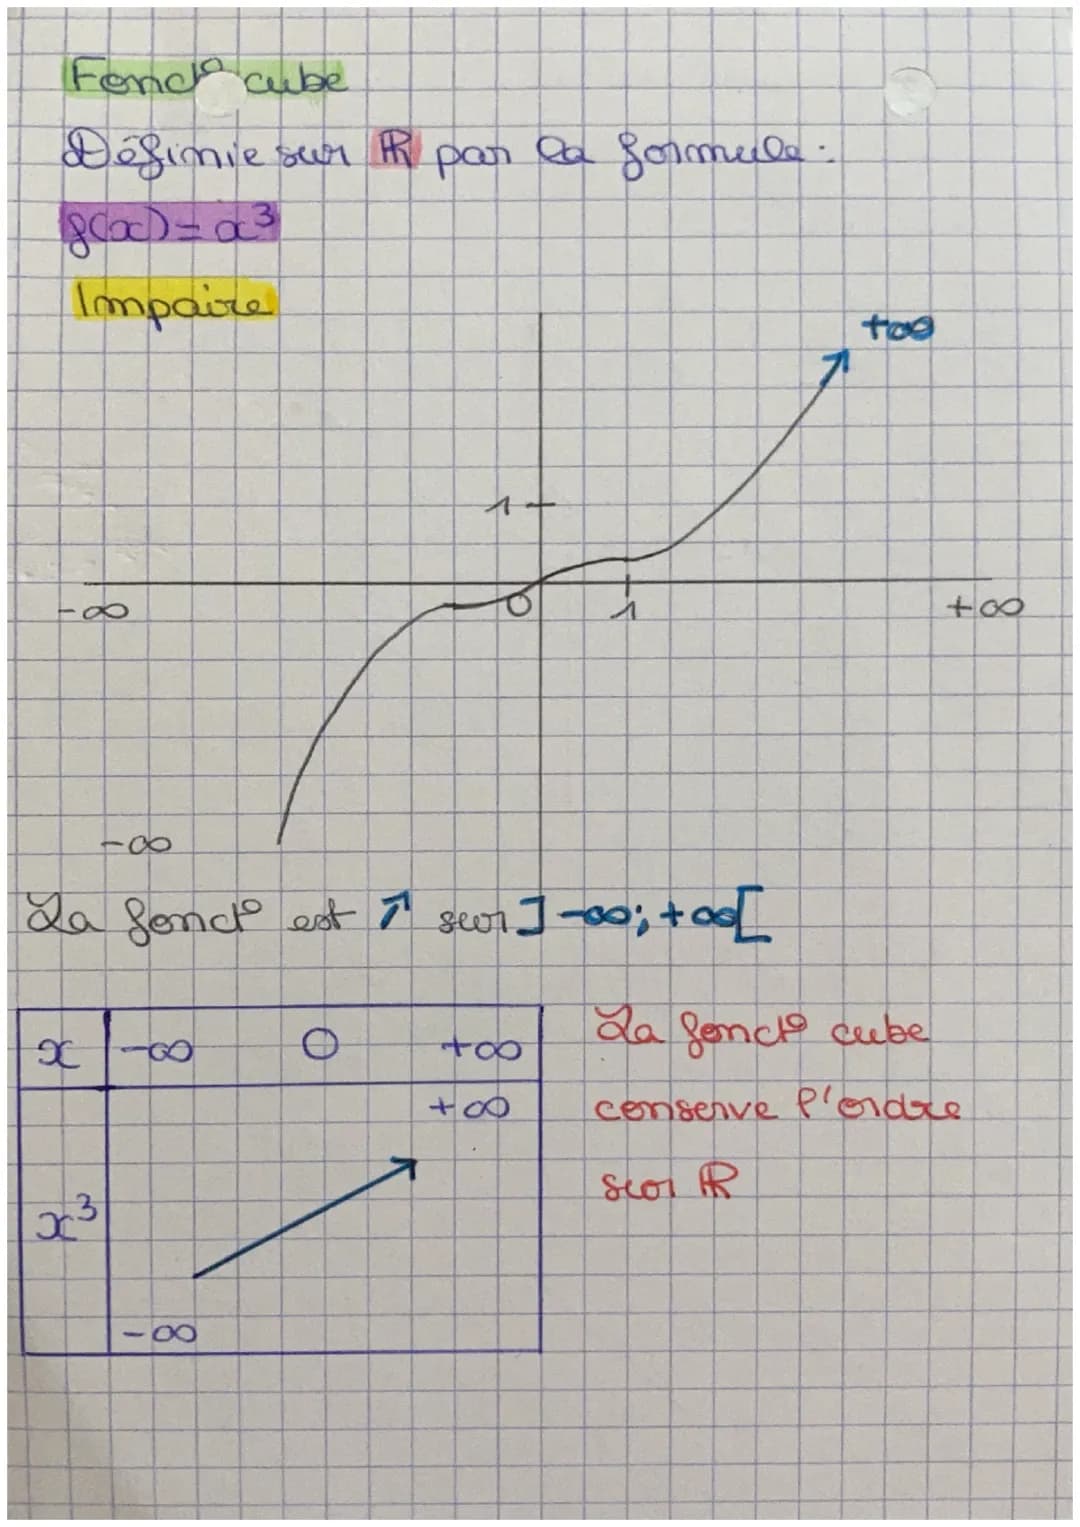 Fonct° cube
Définie sur ℝ par la formule :
f(x) = x³
Impaire
+∞
1
-∞
0
1
+∞
-∞
La fonct° est ↗ sur ]-∞; +∞[
x -∞ 0 +∞
+∞
x³
-∞
La fonct° cube
conserve l'ordre
sur ℝ